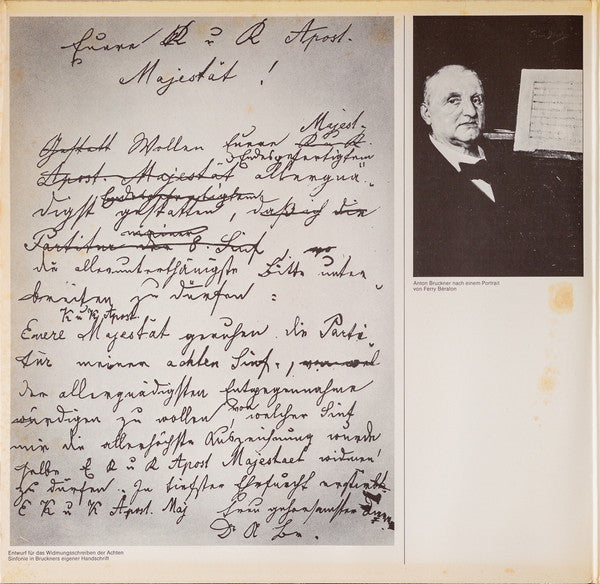 Euere K u K Apost.
Majestät !
Majest.
Gestatt Wollen Euere K u K.
Endesgefertigtem
Apost. Majestät allergnä-
Endesgefertigtem
digst gestatten, daß ich die
meiner
Partitur der 8. Sinf
die allerunterthänigste Bitte unter-
breiten zu dürfen:
K u K Apost.
Euere Majestät geruhen die Parti-
tur meiner achten Sinf.,
der allergnädigsten Entgegennahme
würdigen zu wollen, von welcher Sinf
mir die allerhöchste Auszeichnung wurde
selbe E K u K Apost Majestaet widmen
zu dürfen. In tiefster Ehrfurcht erstirbt
E K u K Apost. Maj
treu gehorsamster
Dr A Br.
Entwurf für das Widmungsschreiben der Achten
Sinfonie in Bruckners eigener Handschrift
Anton Bruckner nach einem Portrait
von Ferry Bèraton